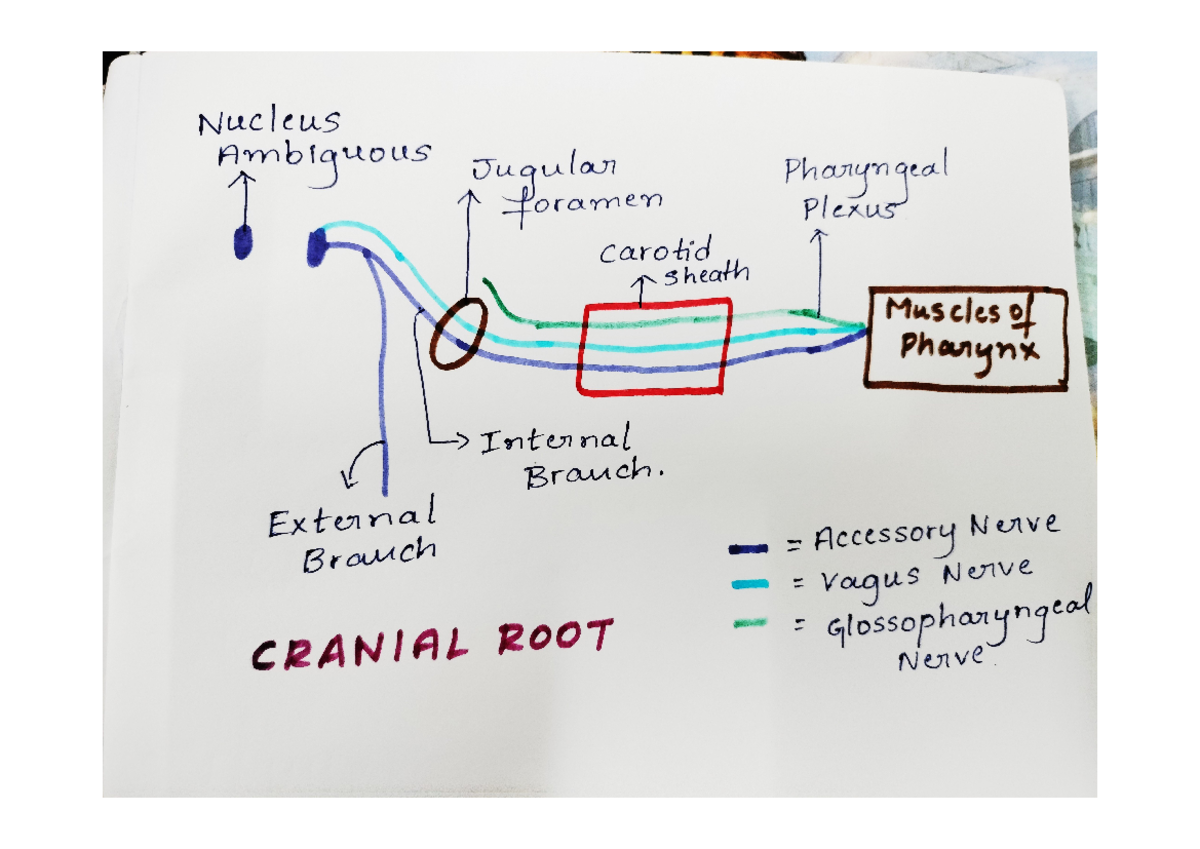 Nucleus
Ambiguous
Jugular
foramen
Pharyngeal
Plexus
Carotid
Sheath
Muscles of
Pharynx
Internal
Brauch.
External
Brauch
= Accessory Nerve
= Vagus Nerve
= Glossopharyngeal
Nerve.
CRANIAL ROOT